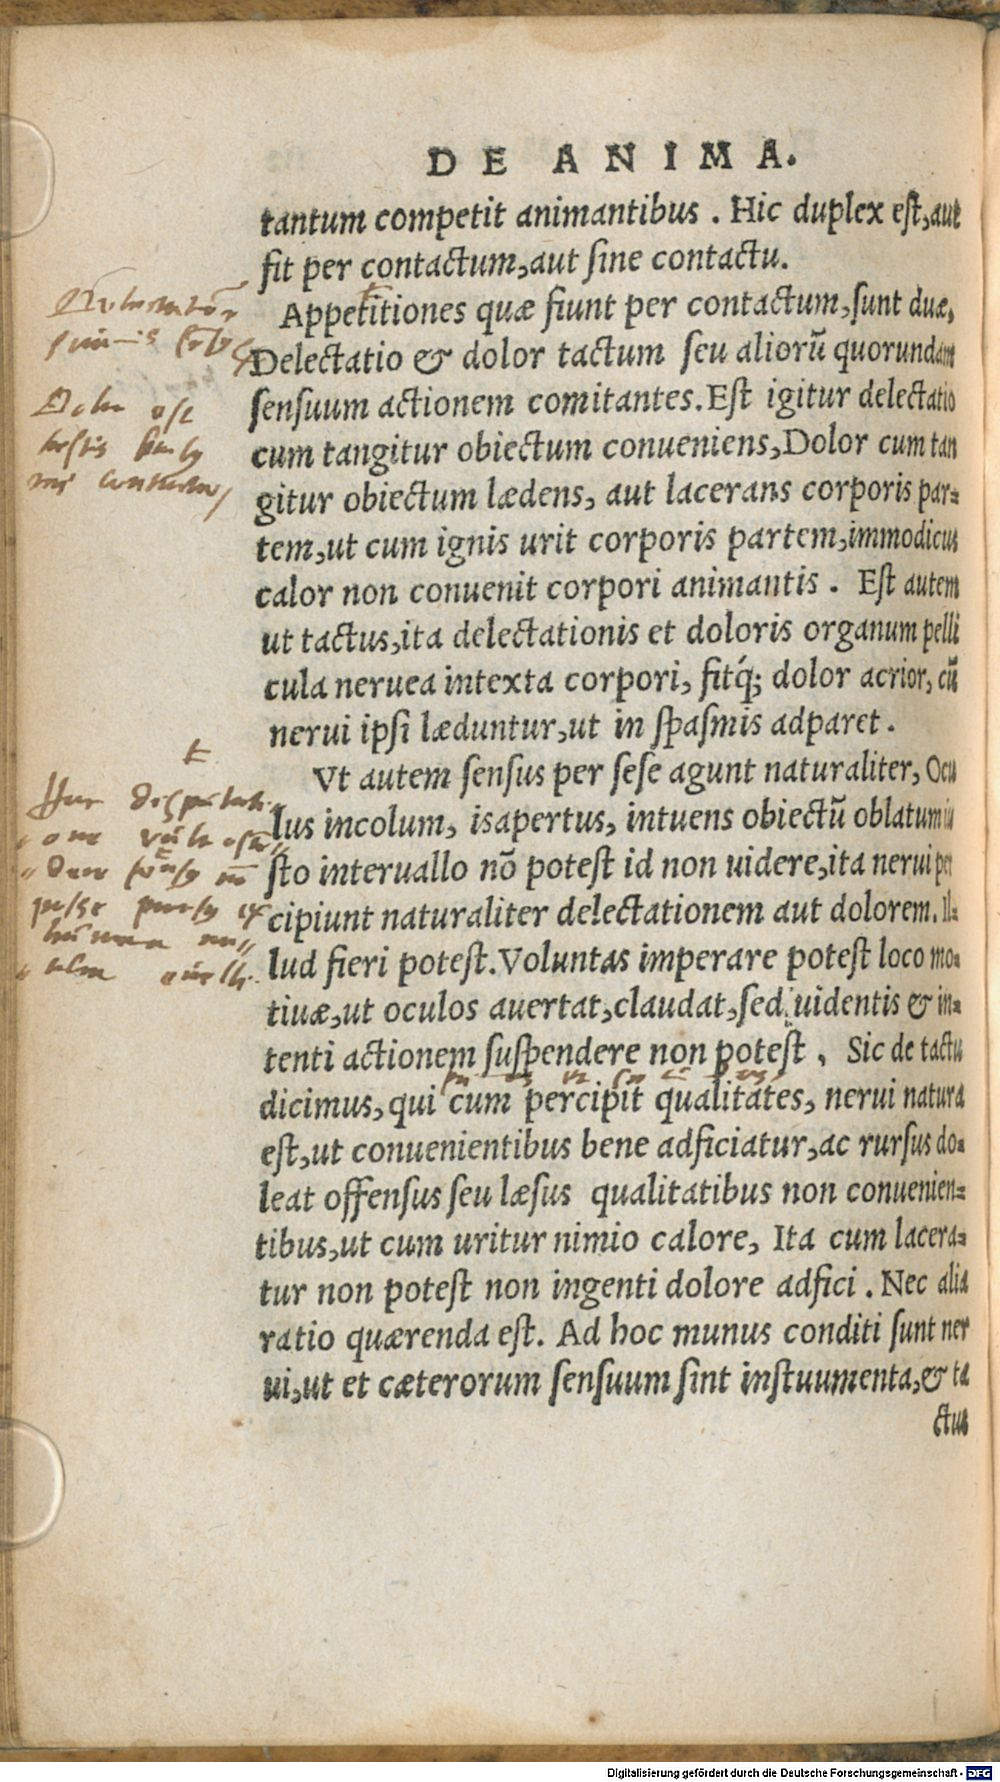 DE ANIMA.
tantum competit animantibus . Hic duplex est, aut
fit per contactum, aut sine contactu.
Appetitiones quæ fiunt per contactum, sunt duæ,
Delectatio & dolor tactum seu aliorũ quorundam
sensuum actionem comitantes. Est igitur delectatio
cum tangitur obiectum conueniens, Dolor cum tan
gitur obiectum lædens, aut lacerans corporis par=
tem, ut cum ignis urit corporis partem, immodicus
calor non conuenit corpori animantis . Est autem
ut tactus, ita delectationis et doloris organum pelli
cula neruea intexta corpori, fitq́; dolor acrior, cũ
nerui ipsi læduntur, ut in spasmis adparet .
Vt autem sensus per sese agunt naturaliter, Ocu
lus incolum, isapertus, intuens obiectũ oblatum iu
sto interuallo nõ potest id non uidere, ita nerui per
cipiunt naturaliter delectationem aut dolorem. Il=
lud fieri potest. Voluntas imperare potest loco mo=
tiuæ, ut oculos auertat, claudat, sed uidentis & in=
tenti actionem suspendere non potest , Sic de tactu
dicimus, qui cum percipit qualitates, nerui natura
est, ut conuenientibus bene adficiatur, ac rursus do=
leat offensus seu læsus qualitatibus non conuenien=
tibus, ut cum uritur nimio calore, Ita cum lacera=
tur non potest non ingenti dolore adfici . Nec alia
ratio quærenda est. Ad hoc munus conditi sunt ner
ui, ut et cæterorum sensuum sint instuumenta, & ta
ctus
Dolor est
Digitalisierung gefördert durch die Deutsche Forschungsgemeinschaft - DFG